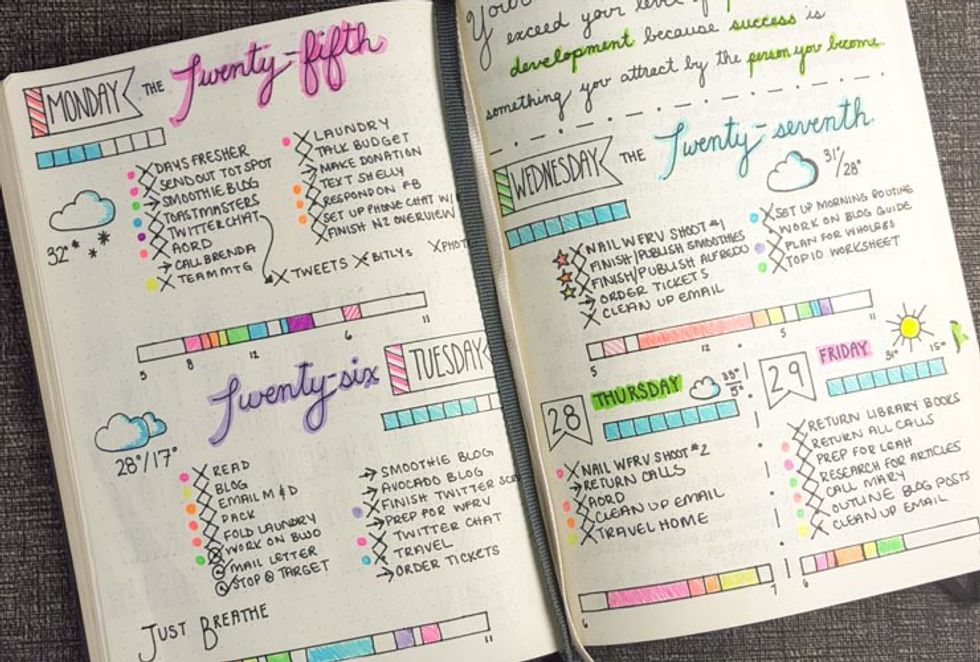 MONDAY THE Twenty-fifth
32°
DAYS FRESHER
SEND OUT TOT SPOT
SMOOTHIE BLOG
TOASTMASTERS
TWITTER CHAT
AORD
CALL BRENDA
TEAM MTG
LAUNDRY
TALK BUDGET
MAKE DONATION
TEXT SHELLY
RESPOND ON FB
SET UP PHONE CHAT W/
FINISH NZ OVERVIEW
TWEETS BITLYS PHOT
5 8 12 6 11
Twenty-six TUESDAY
28°/17°
READ
BLOG
EMAIL M & D
PACK
FOLD LAUNDRY
WORK ON BWO
MAIL LETTER
STOP @ TARGET
SMOOTHIE BLOG
AVOCADO BLOG
FINISH TWITTER
PREP FOR WFRV
TWITTER CHAT
TRAVEL
ORDER TICKETS
JUST BREATHE
11
exceed your level of
development because success is
something you attract by the person you become.
WEDNESDAY THE Twenty-seventh
31°/28°
NAIL WFRV SHOOT #1
FINISH/PUBLISH SMOOTHIES
FINISH/PUBLISH ALFREDO
ORDER TICKETS
CLEAN UP EMAIL
SET UP MORNING ROUTINE
WORK ON BLOG GUIDE
PLAN FOR WHOLE60
TOP 10 WORKSHEET
5 12 5 11
28 THURSDAY
35°/5°
NAIL WFRV SHOOT #2
RETURN CALLS
AORD
CLEAN UP EMAIL
TRAVEL HOME
6 7
29 FRIDAY
31° 15°
RETURN LIBRARY BOOKS
RETURN ALL CALLS
PREP FOR LEAH
RESEARCH FOR ARTICLES
CALL MARY
OUTLINE BLOG POSTS
CLEAN UP EMAIL
6